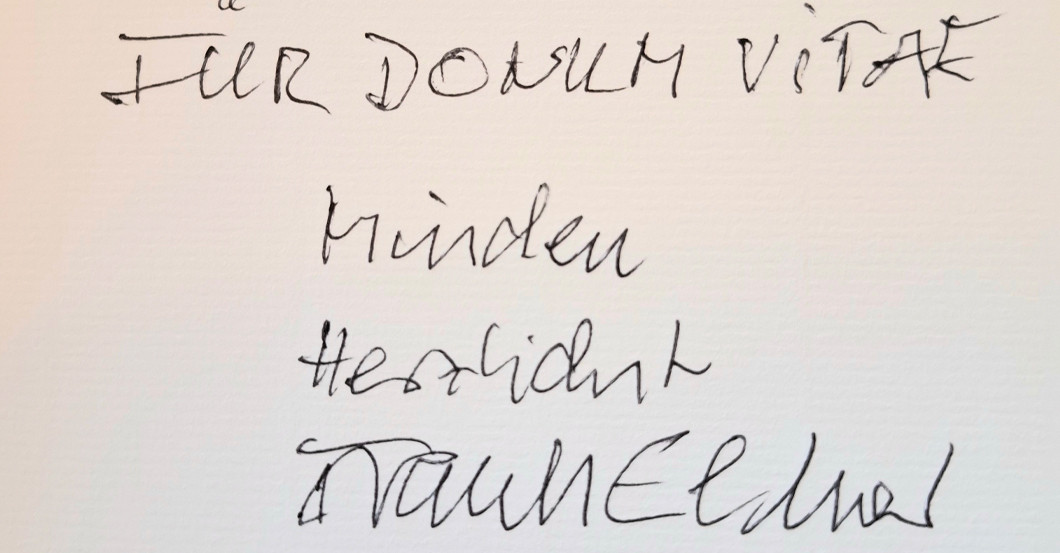 FÜR DONUM VITAE
Minden
Herzlichst
Frank Elstner